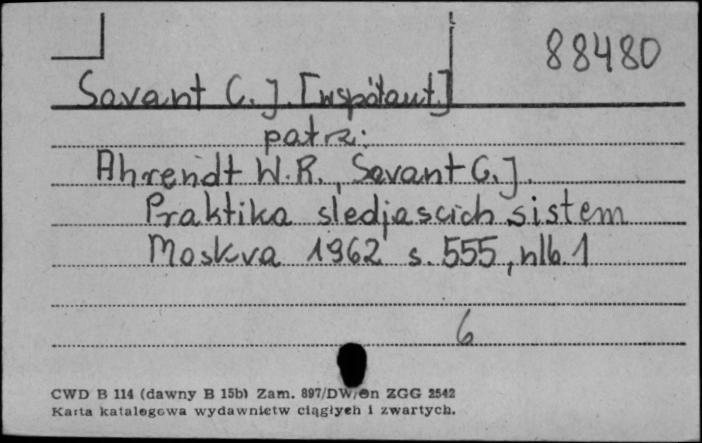 88480
Savant C. J. [współaut.]
patrz:
Ahrendt W. R., Savant C. J.
Praktika sledjascich sistem
Moskva 1962 s. 555, nlb. 1
6
CWD B 114 (dawny B 15b) Zam. 897/DW/Gn ZGG 2542
Karta katalogowa wydawnictw ciągłych i zwartych.